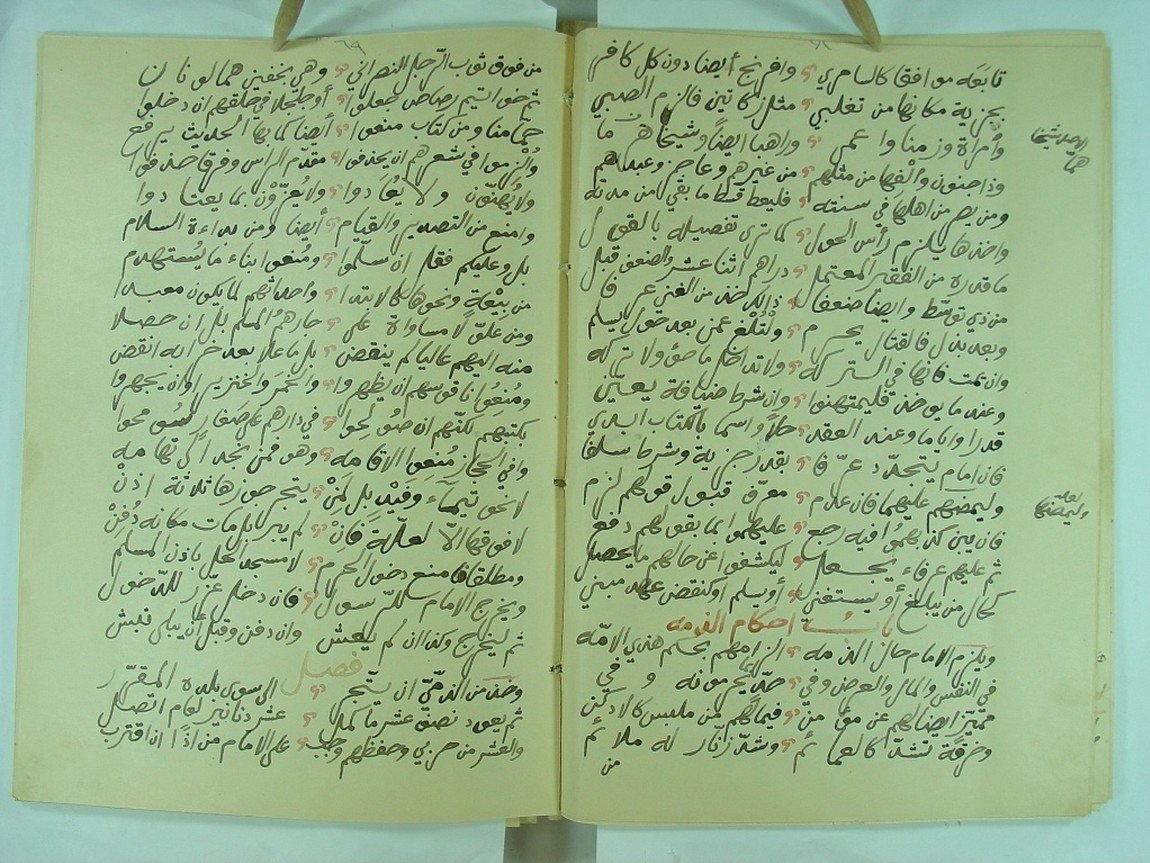 تابعه موافقا كالسامري ؟ وافرنج أيضا دون كل كافر
بجزية مكانها من تغلبي ؟ مثل زكاتين فالزم الصبي
وامرأة وزمنا وا عمى ؟ وراهبا ايضا وشيخا هما
وذا جنون والفها من مثلهم ؟ من غيرهم وعاجز وعبدهم
ومن يصر من اهلها في سنته ؟ فليعط قسط ما بقي من مدته
واخذها يلزم رأس الحول ؟ كما ترى تفصيله بالقول
ما قدره من الفقير المعتمل ؟ دراهم اثنا عشر والضعف قبل
من ذي توسط وايضا ضعفا ؟ ذالك خذ من الغني عرفا
وبعد بذل فالقتال يحرم ؟ ولتلغ عمن بعد حول يسلم
وان يمت فانها في التركة ؟ ولا تداخل
وعند ما يوخذ فليمتهنوا ؟ وان شرط ضيافة يعين
قدرا واياما وعند العقد ؟ حلا واسما بالكتاب ابدي
فان امام يتجدد عرفا ؟ بقدر جزية وشرط سلفا
وليمضهم عليهما فان عدم ؟ معرف قبول قولهم لزم
فان يبن كذبهم فيه رجع ؟ عليهم انما بقولهم دفع
ثم عليهم عرفاء يجعل ؟ ليكشفوا عن حالهم ما يحصل
كحال من يبلغ أو يستغني ؟ أو يسلم او كنقض عهد مبني
باب احكام الذمه
ويلزم الامام حال الذمه ؟ الزامهم بحكم هذي الامه
في النفس والمال والعرض وفي ؟ حد يحرمونه و في
تمييز ايضا لهم عن من ؟ فيما لهم من ملبس كالادكن
وخرقة تشد كالعمائم ؟ وشد زنار له ملائم
من
الايصدشيخا
هما
لعله
وليمضها
٦٩
من فوق ثوب الرجل النصراني ؟ وهي بخفين هما لونان
ثم خواتيم رصاص جعلوا ؟ أو جلجلا في حلقهم ان دخلوا
حمامنا ومن كتاب منعوا ؟ أيضا كما بها الحديث يرفع
والزموا في شعرهم ان يحذفوا ؟ مقدم الراس وفرقا حذفوا
ولا يهنون ولا يعادوا ؟ ولا يعزون بما يعتادوا
وامنع من التصدير والقيام ؟ أيضا ومن بداءة السلام
بل وعليكم فقل ان سلموا ؟ ومنعوا ابناء ما يستهدم
من بيعة ونحوها كالابتدا ؟ واحداثهم لما يكون معبدا
ومن علو لا مساواة على ؟ جارهم المسلم بل ان حصلا
منه اليهم عاليا لم ينقض ؟ بل ما علا بعد خرابه انقض
ومنعوا ناقوسهم ان يظهروا ؟ والخمر والخنزير او ان يجهروا
بكتبهم لكنهم ان صولحوا ؟ في دارهم على صغار سومحوا
وفي الحجاز منعوا الاقامه ؟ وهو فمن نجد الى تهامه
لا نحو تيماء وفيد بل لمن ؟ يتجر جوزها ثلاثة اذن
لا فوقها الا لعلة فان ؟ لم يبر ابل مات مكانه دفن
ومطلقا فامنع دخول الحرم ؟ لا مسجد الحل باذن المسلم
ويخرج الامام للرسول ؟ فان دخل عزر للدخول
ثم ليخرج وكذا ان لم يعش وان دفن وقبل أن يبلى نبش
فصل
وخذ من الذمي ان يتجر ؟ الى سوى بلده المقرر
ثم يعود نصف عشر ما كمل ؟ عشر دنانير لعام اتصل
والعشر من حربي وحفظهم وجب ؟ على الامام من اذا ان اقترب